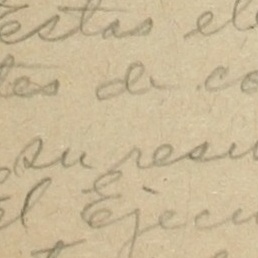 Estas el
tes de co
su resu
El Ejecu